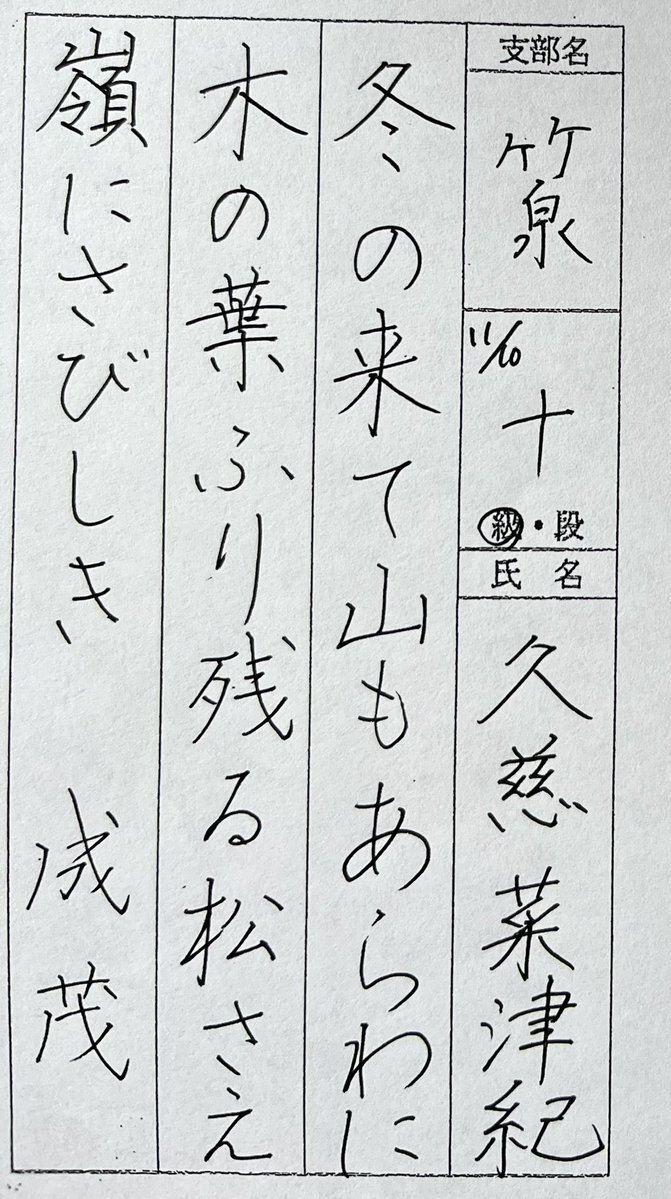 支部名
竹泉
11/10
十
級・段
氏名
久慈菜津紀
冬の来て山もあらわに
木の葉ふり残る松さえ
嶺にさびしき 成茂